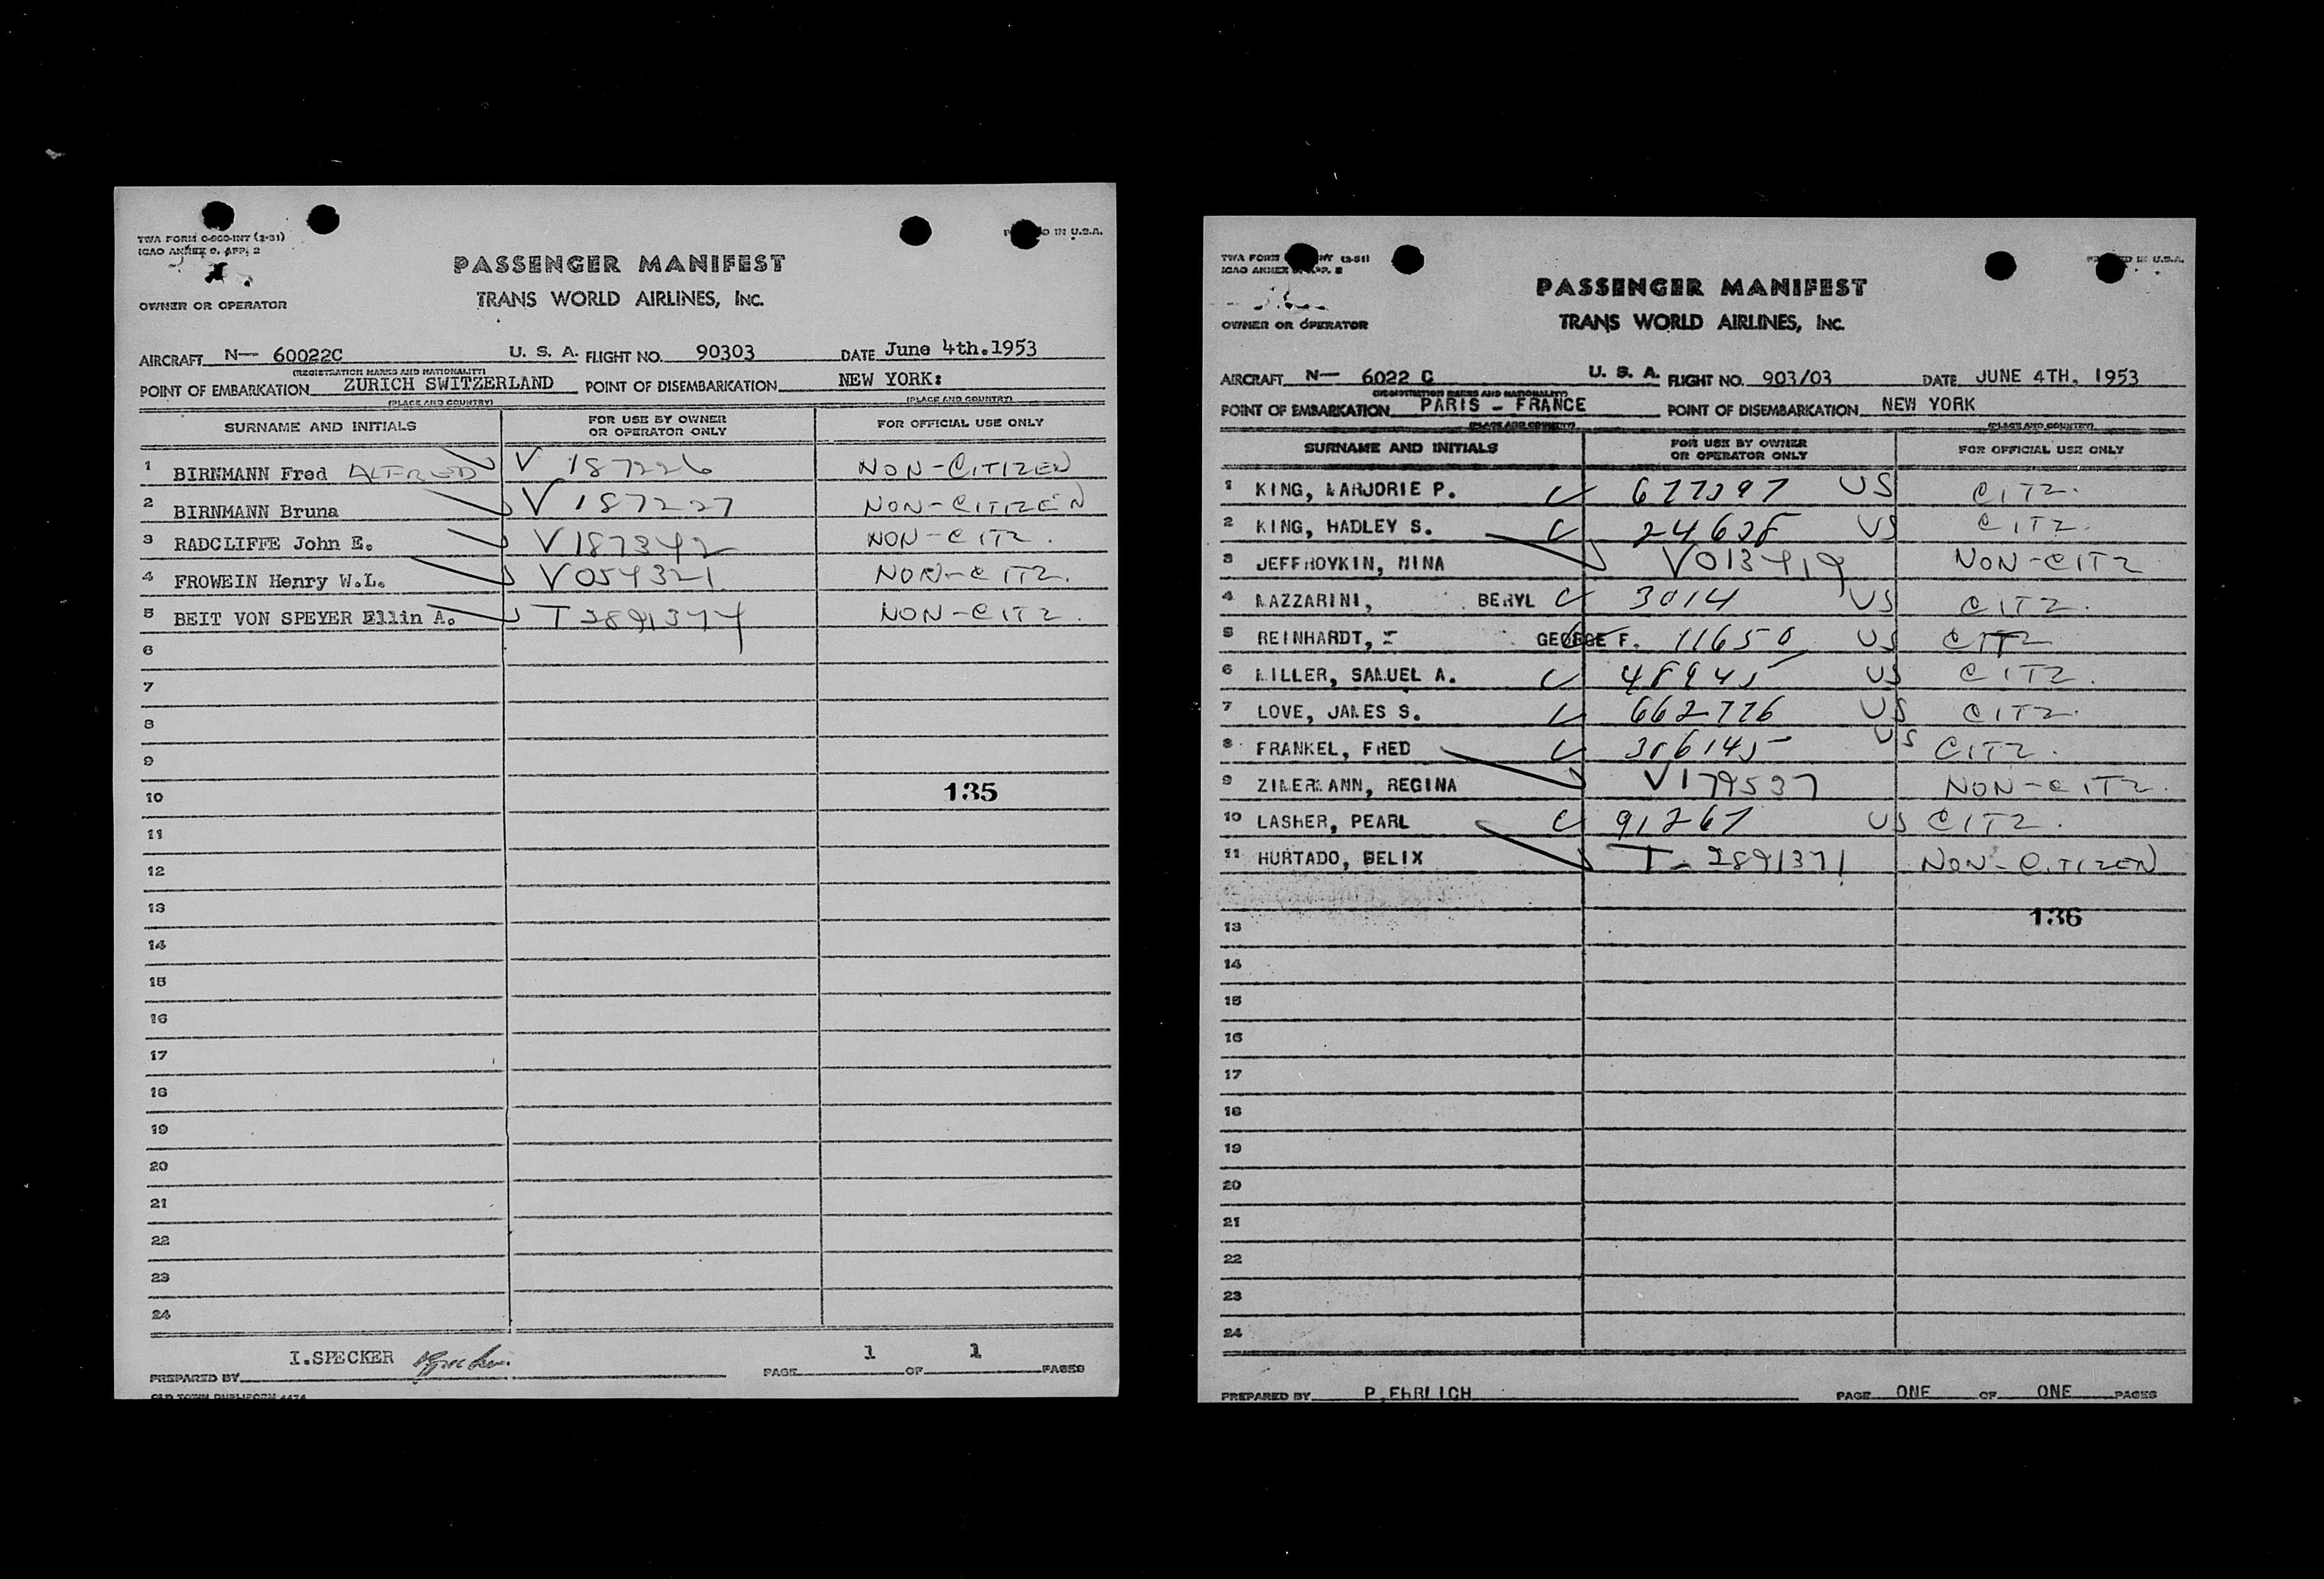 TWA FORM O-900-INT (2-51)
ICAO ANNEX 9, APP. 2
IN U.S.A.
PASSENGER MANIFEST
TRANS WORLD AIRLINES, INC.
OWNER OR OPERATOR
AIRCRAFT N— 60022C U. S. A. FLIGHT NO. 90303 DATE June 4th.1953
(REGISTRATION MARKS AND NATIONALITY)
POINT OF EMBARKATION ZURICH SWITZERLAND POINT OF DISEMBARKATION NEW YORK:
(PLACE AND COUNTRY) (PLACE AND COUNTRY)
SURNAME AND INITIALS FOR USE BY OWNER OR OPERATOR ONLY FOR OFFICIAL USE ONLY
1 BIRNMANN Fred ALFRED V 187226 NON-CITIZEN
2 BIRNMANN Bruna V 187227 NON-CITIZEN
3 RADCLIFFE John E. V187342 NON-CITZ.
4 FROWEIN Henry W.L. V054321 NON-CITZ.
5 BEIT VON SPEYER Ellin A. T2891374 NON-CITZ.
6
7
8
9
10 135
11
12
13
14
15
16
17
18
19
20
21
22
23
24
PREPARED BY I.SPECKER PAGE 1 OF 1 PAGES
TWA FORM (2-51)
ICAO ANNEX APP. 2
IN U.S.A.
PASSENGER MANIFEST
TRANS WORLD AIRLINES, INC.
OWNER OR OPERATOR
AIRCRAFT N— 6022 C U. S. A. FLIGHT NO. 903/03 DATE JUNE 4TH. 1953
(REGISTRATION MARKS AND NATIONALITY)
POINT OF EMBARKATION PARIS - FRANCE POINT OF DISEMBARKATION NEW YORK
(PLACE AND COUNTRY) (PLACE AND COUNTRY)
SURNAME AND INITIALS FOR USE BY OWNER OR OPERATOR ONLY FOR OFFICIAL USE ONLY
1 KING, MARJORIE P. 677297 US CITZ.
2 KING, HADLEY S. 24628 US CITZ.
3 JEFFROYKIN, NINA V013419 NON-CITZ
4 MAZZARINI, BERYL 3014 US CITZ.
5 REINHARDT, GEORGE F. 11650 US CITZ
6 MILLER, SAMUEL A. 48945 US CITZ.
7 LOVE, JAMES S. 662776 US CITZ.
8 FRANKEL, FRED 386145 US CITZ.
9 ZIMERMANN, REGINA V179537 NON-CITZ.
10 LASHER, PEARL 91267 US CITZ.
11 HURTADO, BELIX T-2891371 NON-CITIZEN
136
13
14
15
16
17
18
19
20
21
22
23
24
PREPARED BY P.EHRLICH PAGE ONE OF ONE PAGES